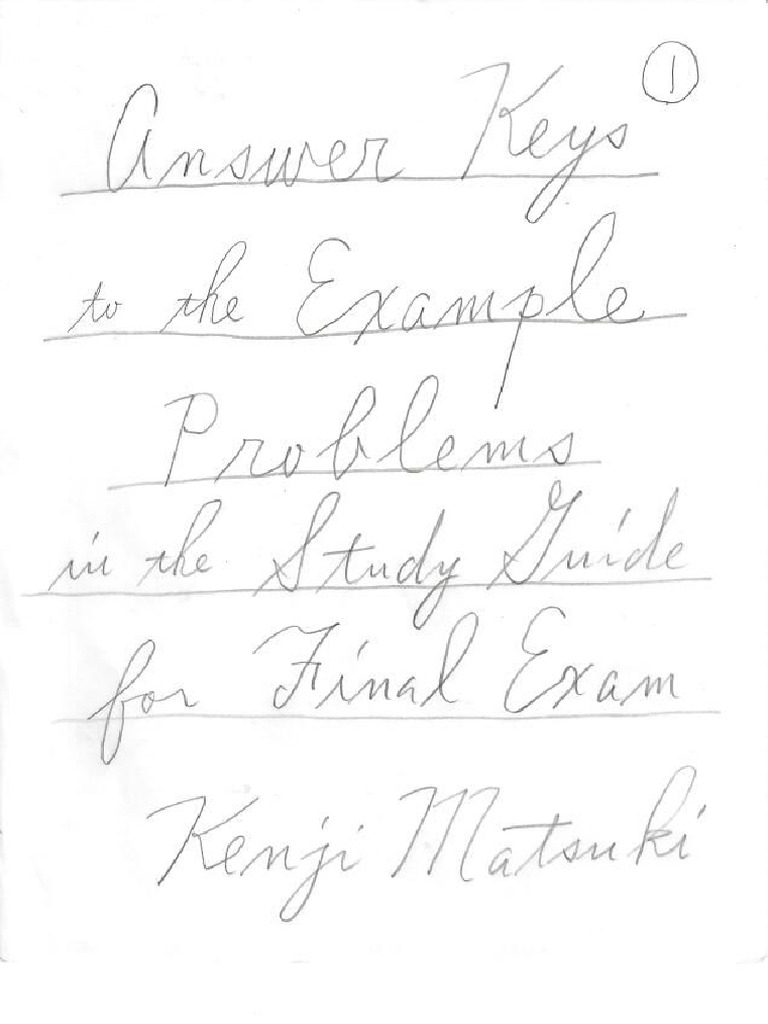 ①
Answer Keys
to the Example
Problems
in the Study Guide
for Final Exam
Kenji Matsuki